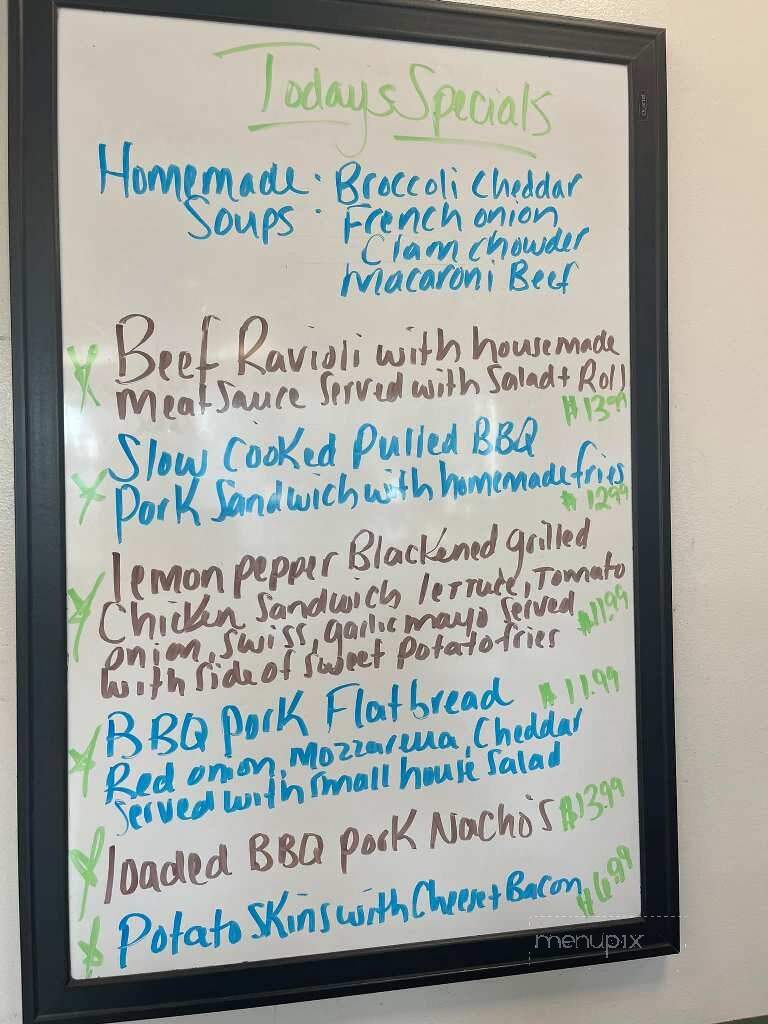 Todays Specials
Homemade · Broccoli Cheddar
Soups · French onion
Clam chowder
Macaroni Beef
Beef Ravioli with housemade
Meat sauce served with Salad + Roll
$13.99
Slow Cooked Pulled BBQ
Pork Sandwich with homemade fries
$12.99
lemon pepper Blackened grilled
Chicken Sandwich lettuce, Tomato
onion, swiss, garlic mayo served
$11.99
with side of sweet potato fries
BBQ Pork Flatbread $11.99
Red onion, Mozzarella, Cheddar
served with small house salad
loaded BBQ pork Nacho's $13.99
Potato Skins with Cheese + Bacon $6.99
menupix